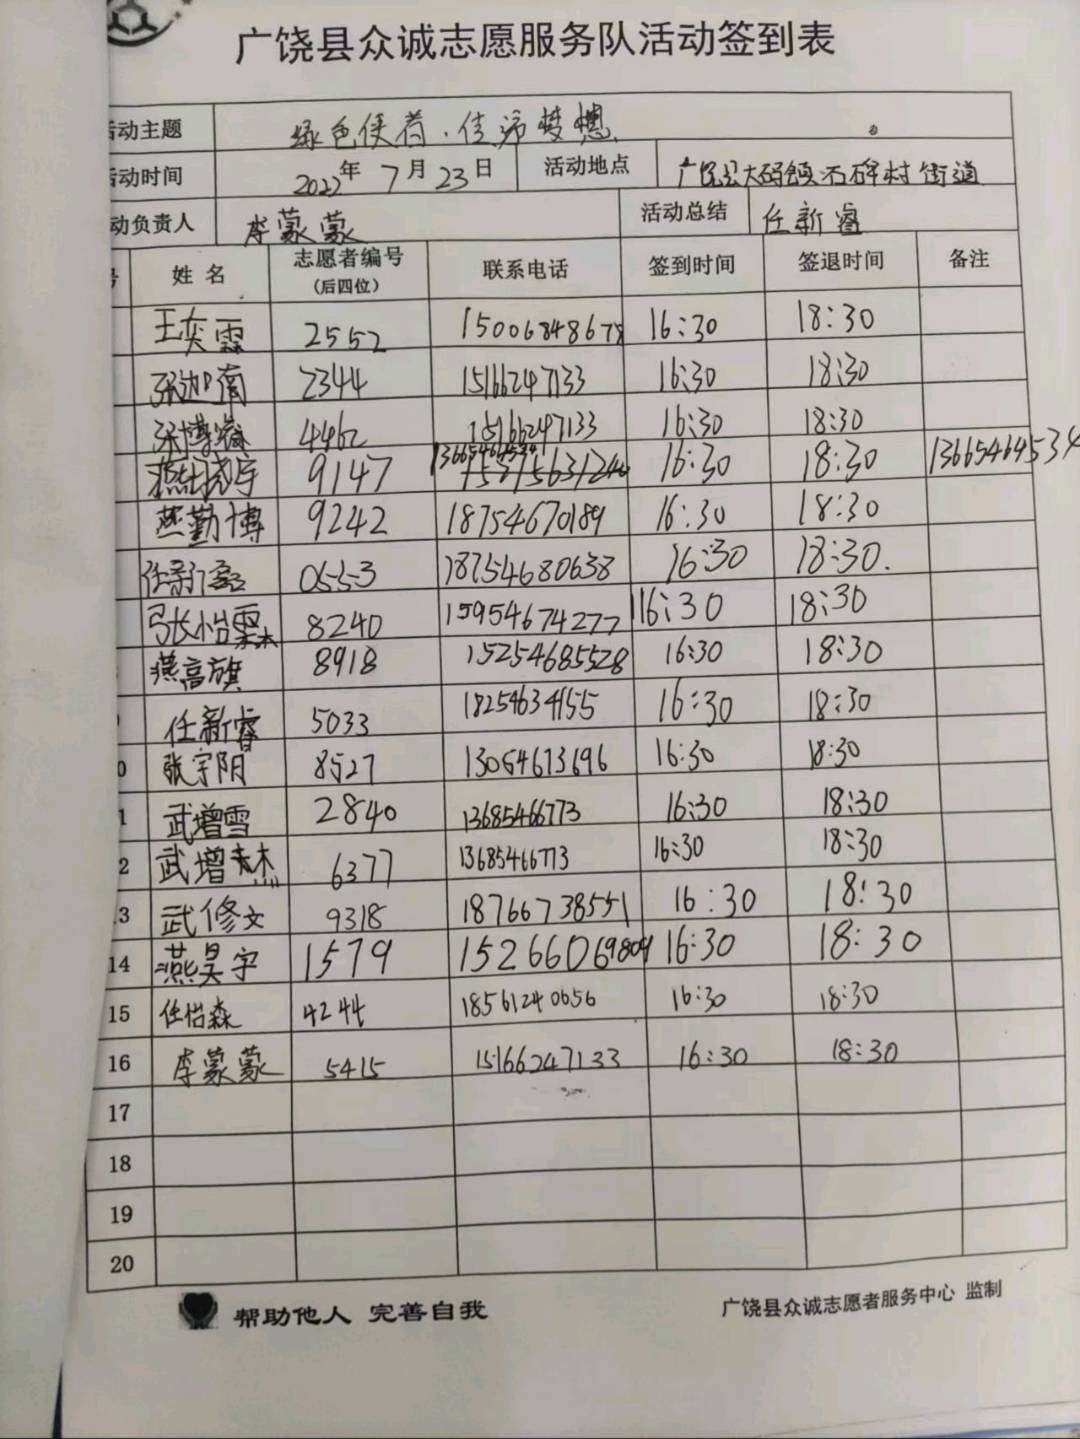 广饶县众诚志愿服务队活动签到表
活动主题 绿色使者·传 梦想
活动时间 2022年7月23日 活动地点 广饶县大码头镇 村街道
动负责人 李蒙蒙 活动总结 任新睿
号 姓名 志愿者编号（后四位） 联系电话 签到时间 签退时间 备注
王奕霖 2552 15006848678 16:30 18:30
张迦南 2344 15166247133 16:30 18:30
张博睿 4462 15166247133 16:30 18:30
9147 16:30 18:30
燕勤博 9242 18754670189 16:30 18:30
任新磊 0553 18754680638 16:30 18:30.
张怡霖 8240 15954674277 16:30 18:30
燕高旗 8918 15254685528 16:30 18:30
任新睿 5033 18254634155 16:30 18:30
0 张宇阳 8527 13054673696 16:30 18:30
1 武增雪 2840 13685466773 16:30 18:30
2 武增杰 6377 13685466773 16:30 18:30
3 武修文 9318 18766738551 16:30 18:30
14 燕昊宇 1579 15266069809 16:30 18:30
15 任怡森 4244 18561240656 16:30 18:30
16 李蒙蒙 5415 15166247133 16:30 18:30
17
18
19
20
帮助他人 完善自我 广饶县众诚志愿者服务中心 监制